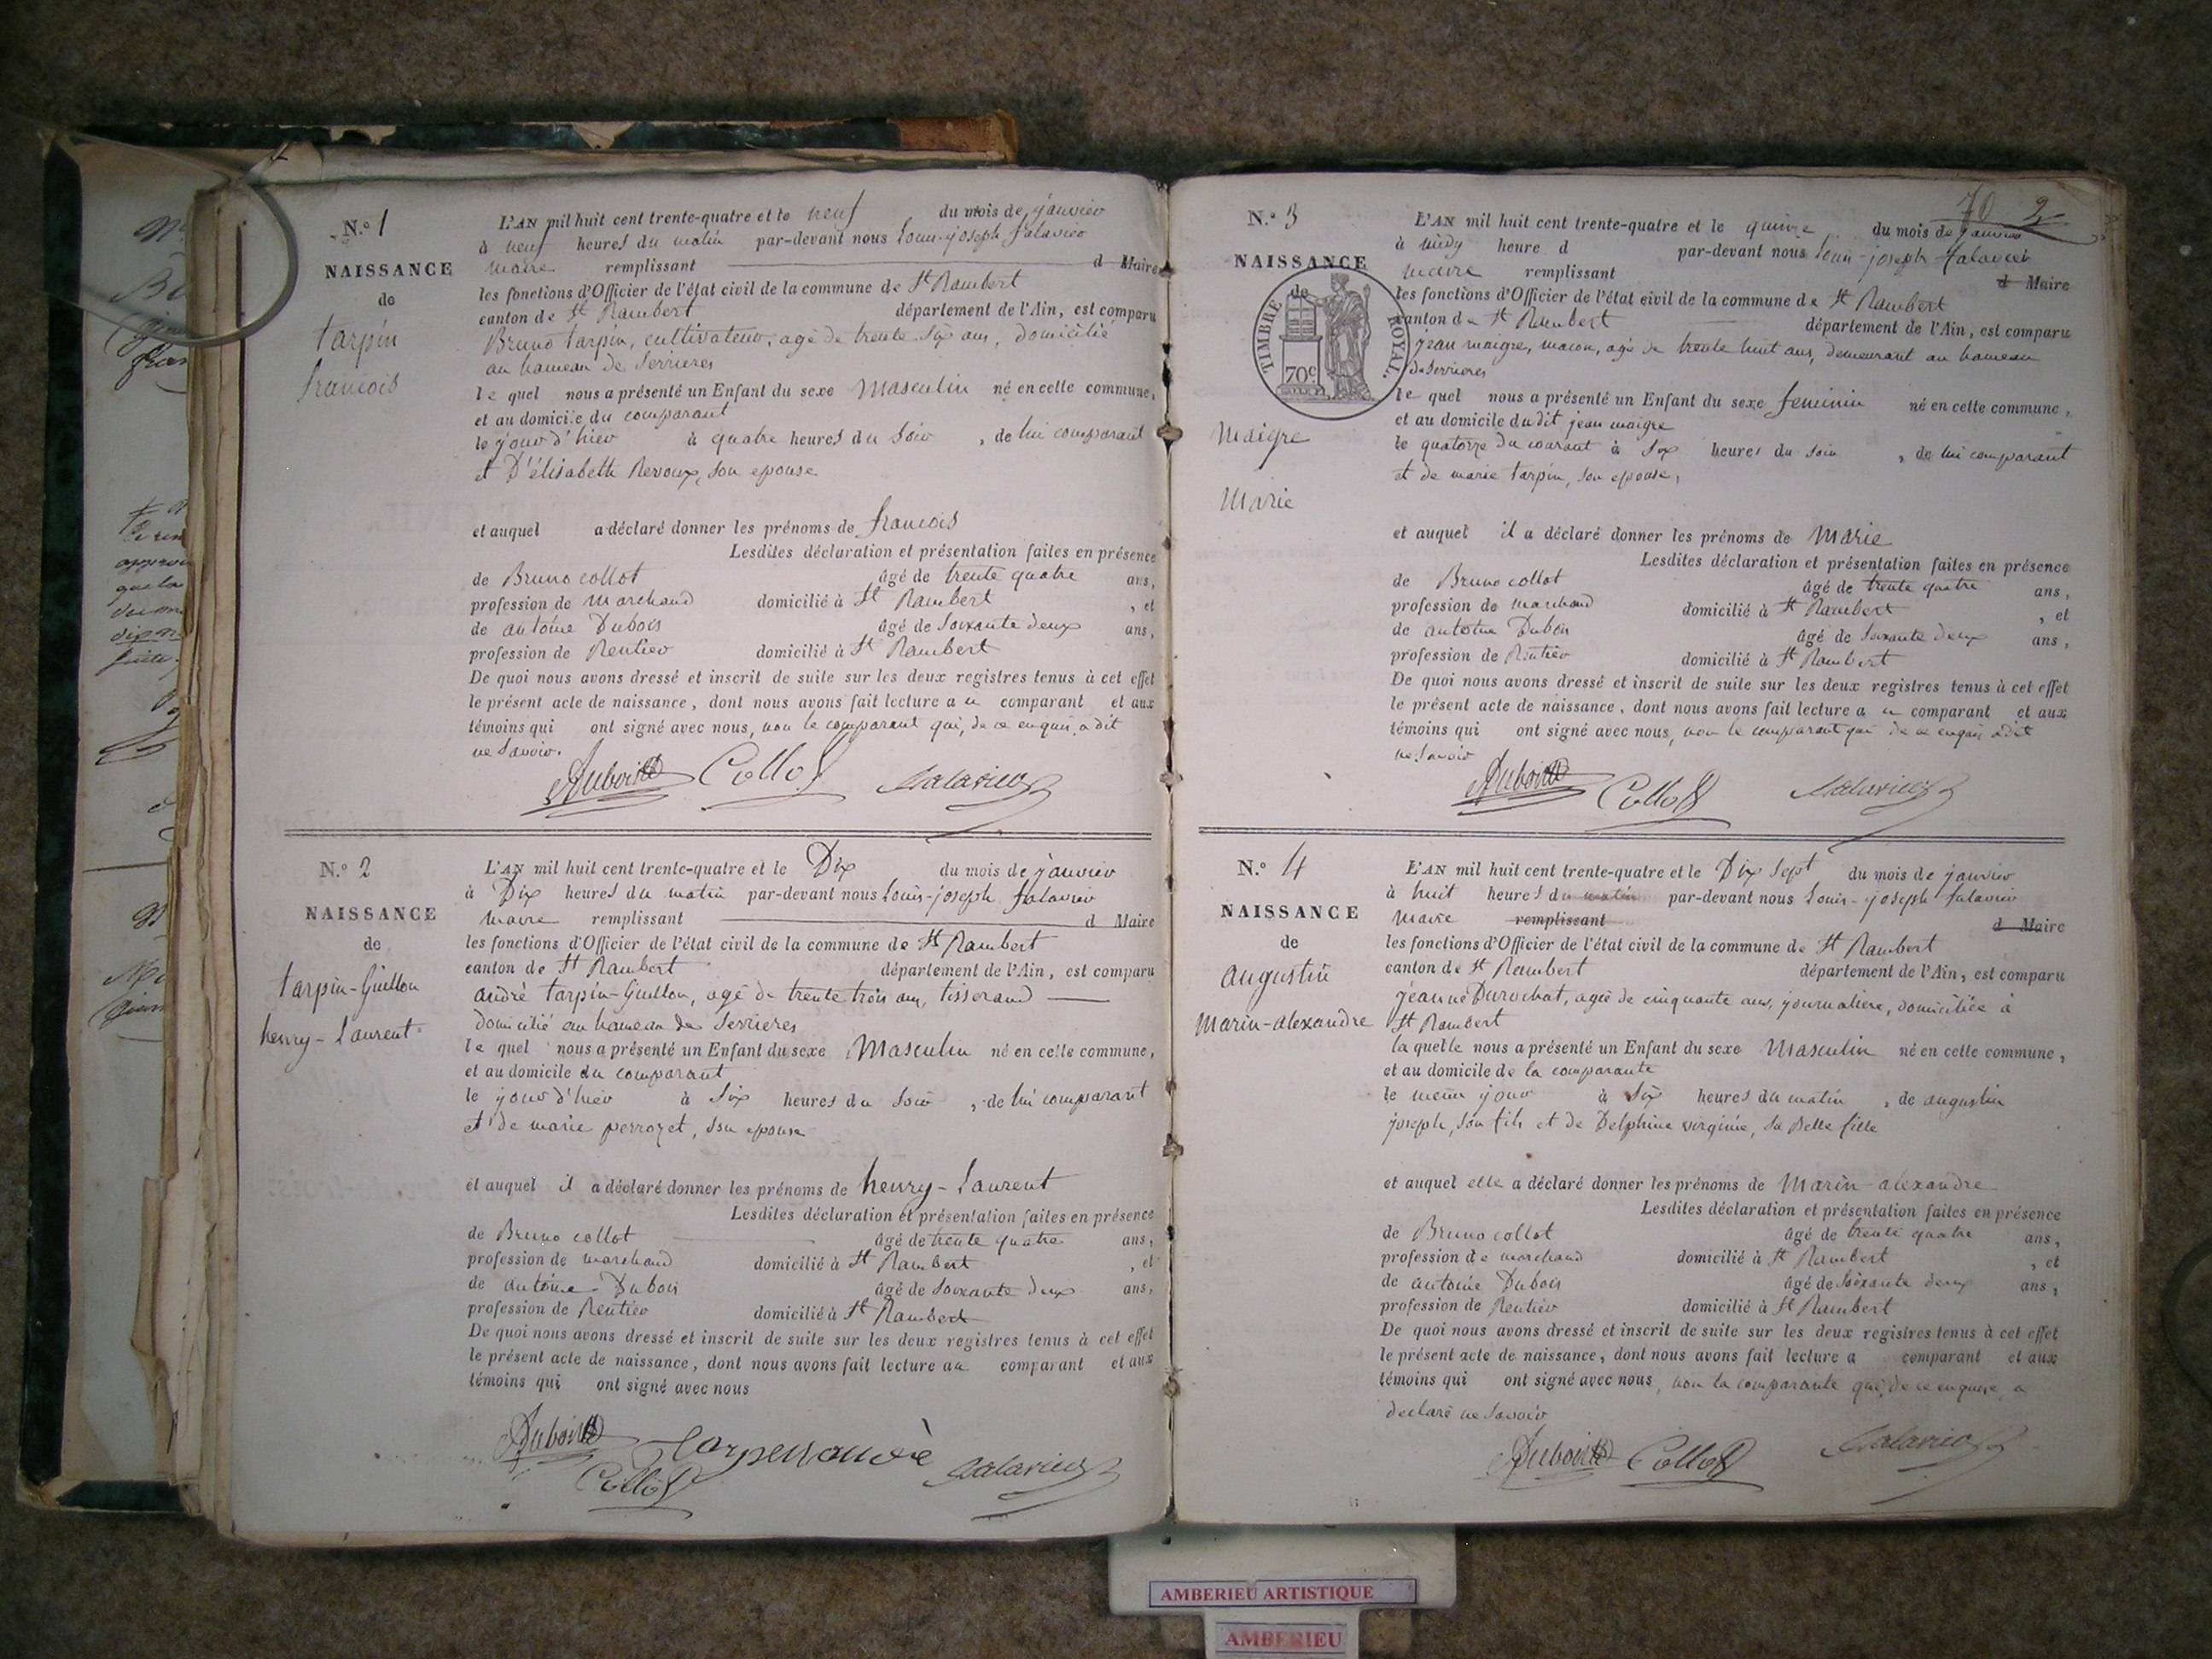 N.º 1
NAISSANCE
de
tarpin
francois
L'AN mil huit cent trente-quatre et le neuf du mois de janvier
à neuf heures du matin par-devant nous Louis-joseph falavier
maire remplissant d Maire
les fonctions d'Officier de l'état civil de la commune de St Rambert
canton de St Rambert département de l'Ain, est comparu
Bruno tarpin, cultivateur, agé de trente six ans, domicilié
au hameau de Serrieres
le quel nous a présenté un Enfant du sexe Masculin né en cette commune,
et au domicile du comparant
le jour d'hier à quatre heures du soir, de lui comparant
et D'élisabeth Revoux, son epouse
et auquel a déclaré donner les prénoms de francois
Lesdites déclaration et présentation faites en présence
de Bruno collot âgé de trente quatre ans,
profession de Marchand domicilié à St Rambert, et
de antoine Dubois âgé de Soixante deux ans,
profession de Rentier domicilié à St Rambert
De quoi nous avons dressé et inscrit de suite sur les deux registres tenus à cet effet
le présent acte de naissance, dont nous avons fait lecture au comparant et aux
témoins qui ont signé avec nous, non le comparant qui, de ce enquis, a dit
ne Savoir.
Dubois Collot falavier
N.º 2
NAISSANCE
de
tarpin-Guillon
henry-Laurent
L'AN mil huit cent trente-quatre et le Dix du mois de janvier
à Dix heures du matin par-devant nous Louis-joseph falavier
Maire remplissant d Maire
les fonctions d'Officier de l'état civil de la commune de St Rambert
canton de St Rambert département de l'Ain, est comparu
andré tarpin-Guillon, agé de trente trois ans, tisserand
domicilié au hameau de Serrieres
le quel nous a présenté un Enfant du sexe Masculin né en cette commune,
et au domicile du comparant
le jour d'hier à Six heures du Soir, de lui comparant
et de marie perrozet, son epouse
et auquel il a déclaré donner les prénoms de henry-Laurent
Lesdites déclaration et présentation faites en présence
de Bruno collot âgé de trente quatre ans,
profession de marchand domicilié à St Rambert, et
de antoine Dubois âgé de Soixante deux ans,
profession de Rentier domicilié à St Rambert
De quoi nous avons dressé et inscrit de suite sur les deux registres tenus à cet effet
le présent acte de naissance, dont nous avons fait lecture au comparant et aux
témoins qui ont signé avec nous
Dubois tarpin andré falavier
Collot
70 2
N.º 3
NAISSANCE
de
TIMBRE ROYAL.
70c
Maigre
Marie
L'AN mil huit cent trente-quatre et le quinze du mois de janvier
à midy heure d par-devant nous Louis-joseph falavier
Maire remplissant d Maire
les fonctions d'Officier de l'état civil de la commune de St Rambert
canton de St Rambert département de l'Ain, est comparu
jean maigre, macon, agé de trente huit ans, demeurant au hameau
de Serrieres
le quel nous a présenté un Enfant du sexe feminin né en cette commune,
et au domicile du dit jean maigre
le quatorze du courant à Six heures du soir, de lui comparant
et de marie tarpin, son epouse,
et auquel il a déclaré donner les prénoms de Marie
Lesdites déclaration et présentation faites en présence
de Bruno collot âgé de trente quatre ans,
profession de marchand domicilié à St Rambert, et
de antoine Dubois âgé de Soixante deux ans,
profession de Rentier domicilié à St Rambert
De quoi nous avons dressé et inscrit de suite sur les deux registres tenus à cet effet
le présent acte de naissance, dont nous avons fait lecture au comparant et aux
témoins qui ont signé avec nous, non le comparant qui de ce enquis a dit
ne Savoir
Dubois Collot falavier
N.º 4
NAISSANCE
de
augustin
Marin-alexandre
L'AN mil huit cent trente-quatre et le Dix Sept du mois de janvier
à huit heures du matin par-devant nous Louis-joseph falavier
Maire remplissant d Maire
les fonctions d'Officier de l'état civil de la commune de St Rambert
canton de St Rambert département de l'Ain, est comparu
jeanne Durochat, agée de cinquante ans, journaliere, domiciliée à
St Rambert
la quelle nous a présenté un Enfant du sexe Masculin né en cette commune,
et au domicile de la comparante
le même jour à Six heures du matin, de augustin
joseph, son fils et de Delphine virginie, sa Belle fille
et auquel elle a déclaré donner les prénoms de Marin alexandre
Lesdites déclaration et présentation faites en présence
de Bruno collot âgé de trente quatre ans,
profession de marchand domicilié à St Rambert, et
de antoine Dubois âgé de Soixante deux ans,
profession de Rentier domicilié à St Rambert
De quoi nous avons dressé et inscrit de suite sur les deux registres tenus à cet effet
le présent acte de naissance, dont nous avons fait lecture a comparant et aux
témoins qui ont signé avec nous, non la comparante qui, de ce enquise, a
declaré ne Savoir
Dubois Collot falavier
AMBERIEU ARTISTIQUE
AMBERIEU